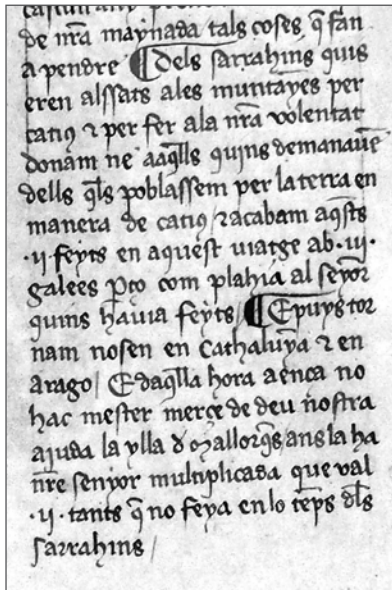 de nr̃a maynada tals coses q̃ fan
a pendre ¶ dels sarrahins quis
eren alssats ales muntayes per
catius ⁊ per fer ala nr̃a volentat
donam ne aaq̃lls quins demanauẽ
dells q̃ls poblassem per la terra en
manera de catius / ⁊ acabam aq̃sts
·ij· feyts en aquest uiatge ab ·iij·
galees ꝑço com plahia al seyor
quins hauia feyts / ¶ E puys tor
nam nosen en Cathaluya ⁊ en
arago / E daq̃lla hora aenca no
hac mester merçe de deu nostra
aiuda la ylla d Mallorq̃s / ans la ha
nr̃e senyor multiplicada que val
·ij· tants q̃ no feya en lo tẽps dl̃s
sarrahins /